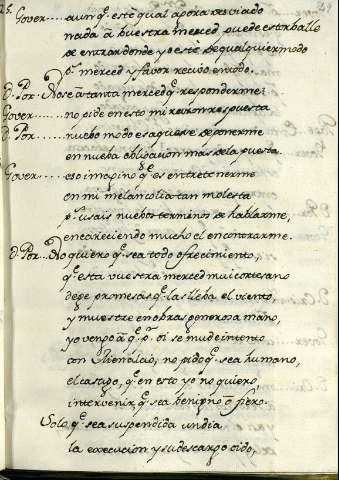 Gover.... aunq̃ este qual aora desviado
nada a Vuestra merced puede estorballo
de entrar donde
pr. merced y favor recivo en todo.
D. Por. No se a tanta merced q̃ responderme.
Gover..... no pide en esto mi razon respuesta
D. Por..... nuebo modo es aqueste de ponerme
en nueba obligacion mas de la puesta.
Gover..... eso imagino q̃ es entretenerme
en mi melancolia tan molesta
pr. usais nuebos terminos de hablarme,
encareciendo mucho el encontrarme.
D. Por... No quiero q̃ sea todo ofrecimiento,
q̃ esta vuestra merced mui cortesano
de promesas q̃ las lleba el viento,
y muestre en obras generosa mano,
yo vengo a q̃ pr. oi se mude intento
con Arnaldo, no pido q̃ sea humano,
el castigo, q̃ en esto yo no quiero,
intervenir, q̃ sea benigno o fiero.
Solo q̃ sea suspendida un dia
la execucion y su descargo oido,